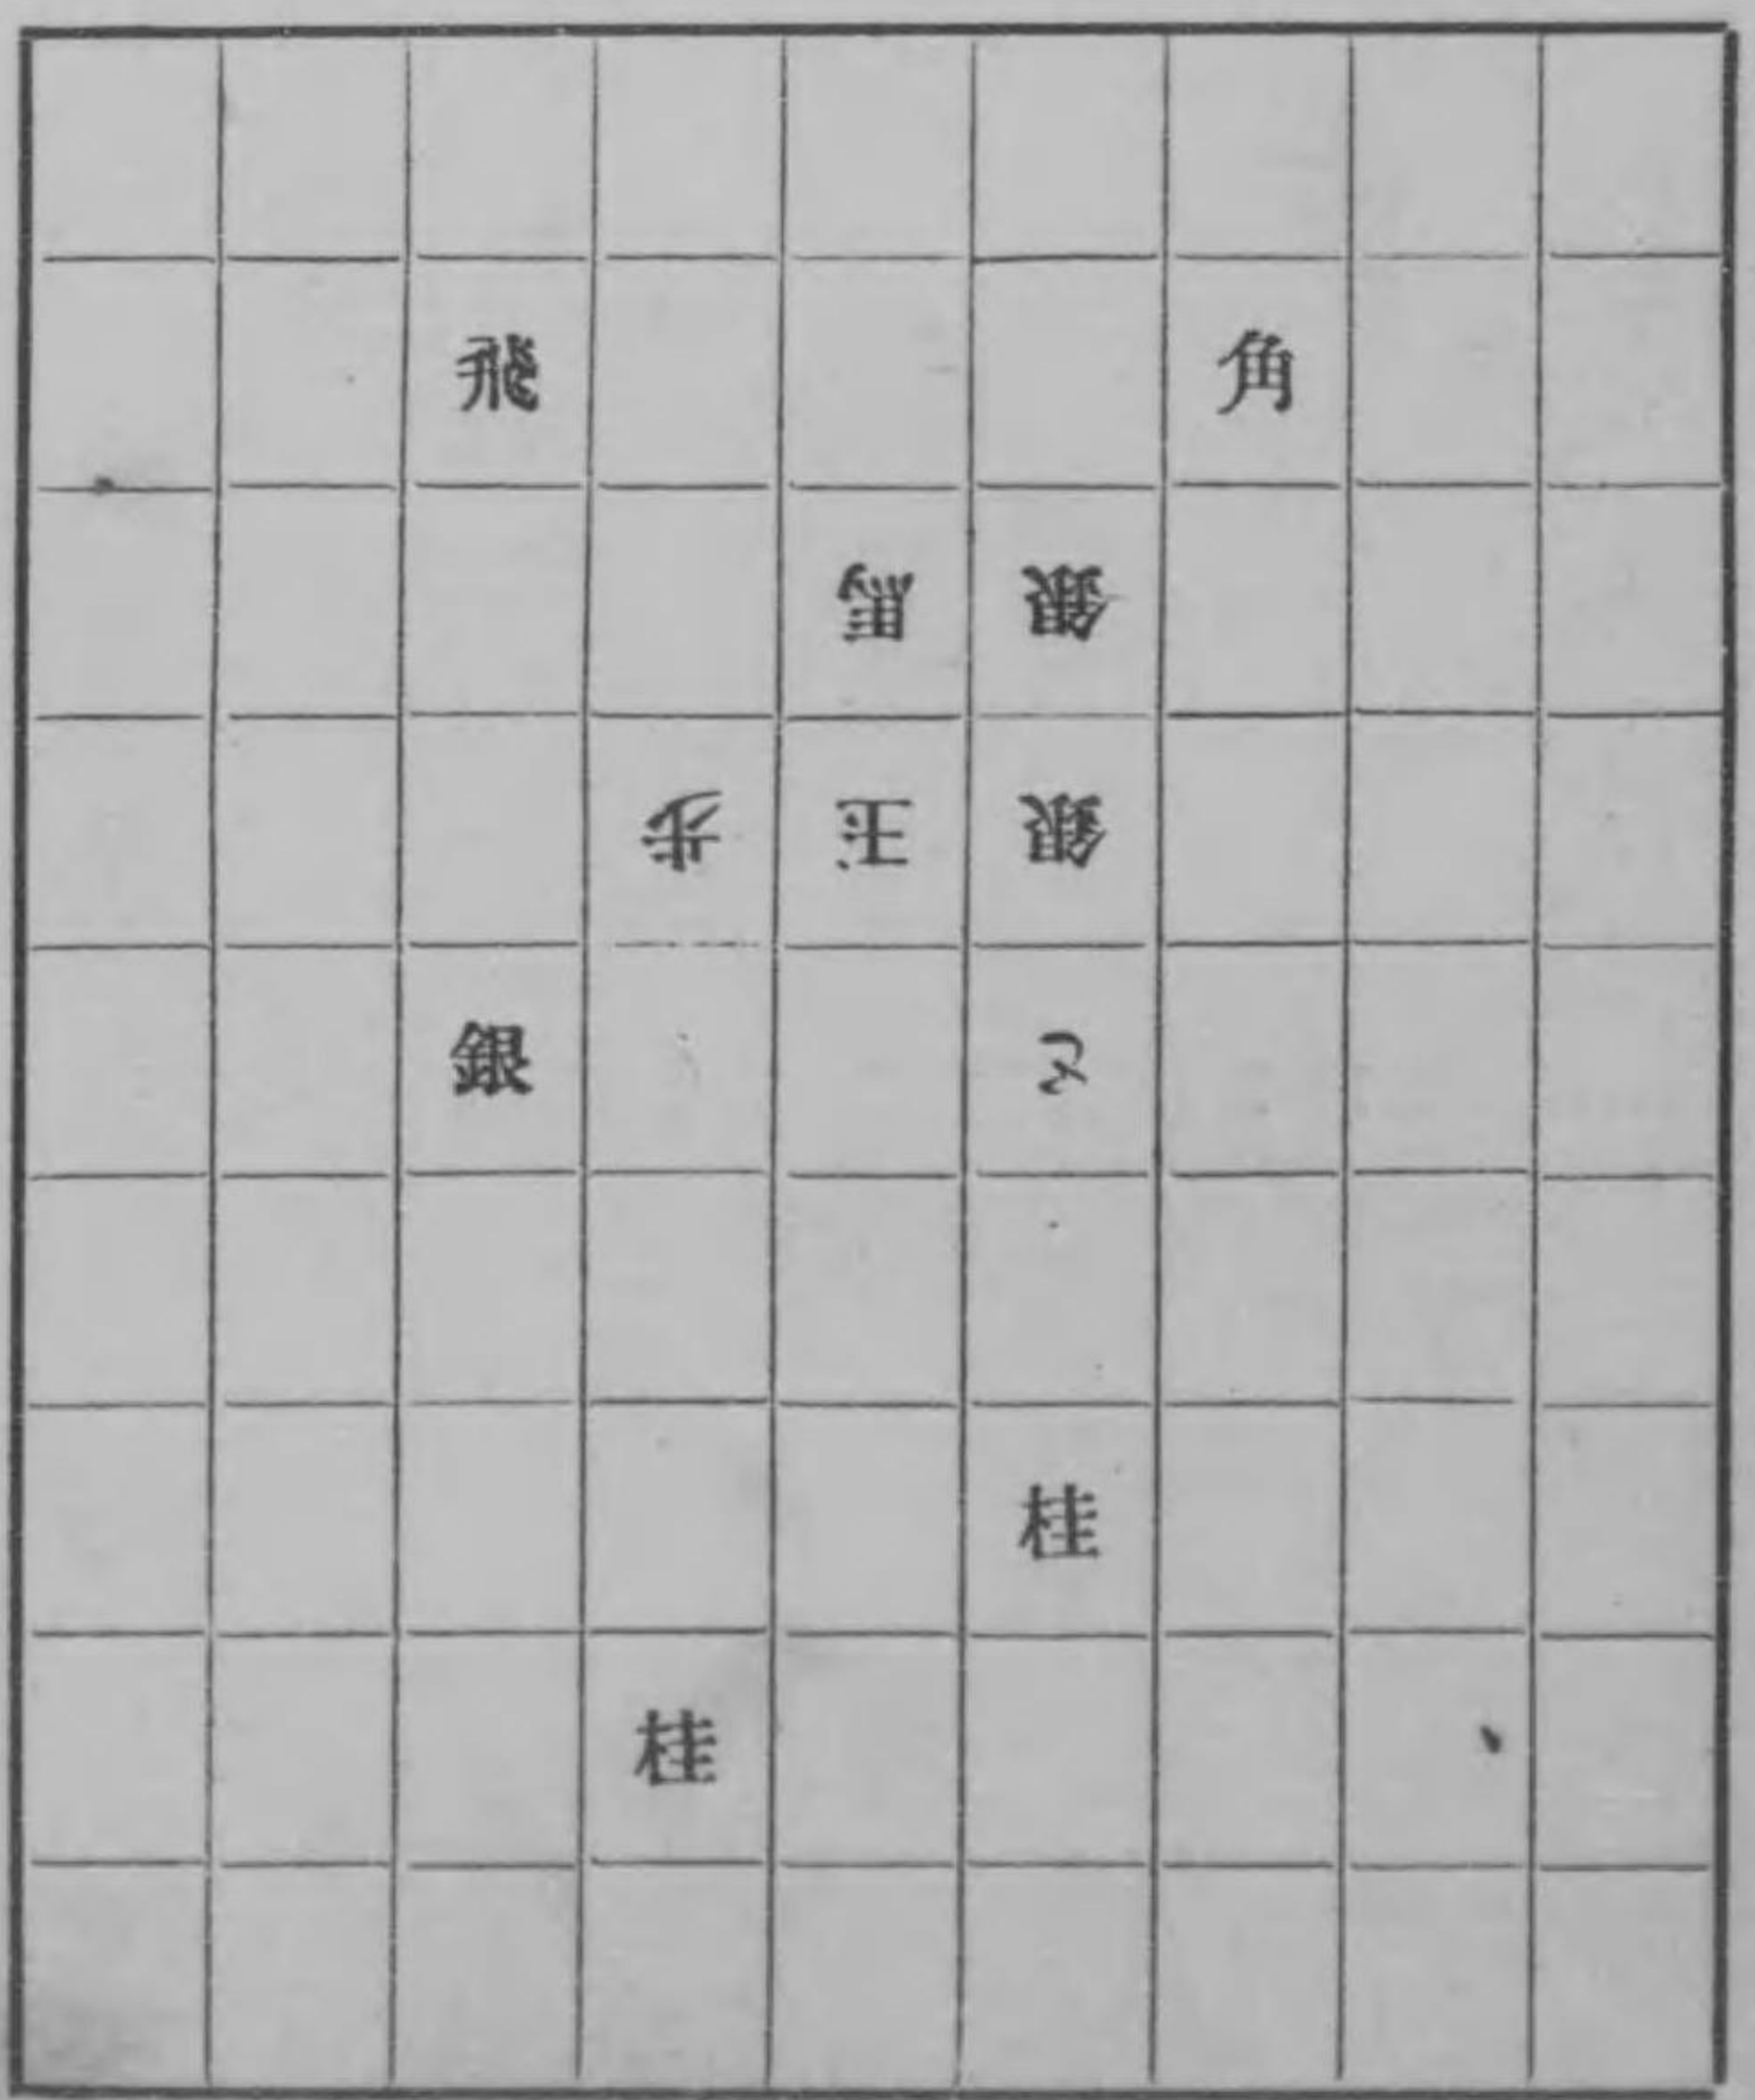 飛 角
馬 銀
歩 玉 銀
銀 と
桂
桂